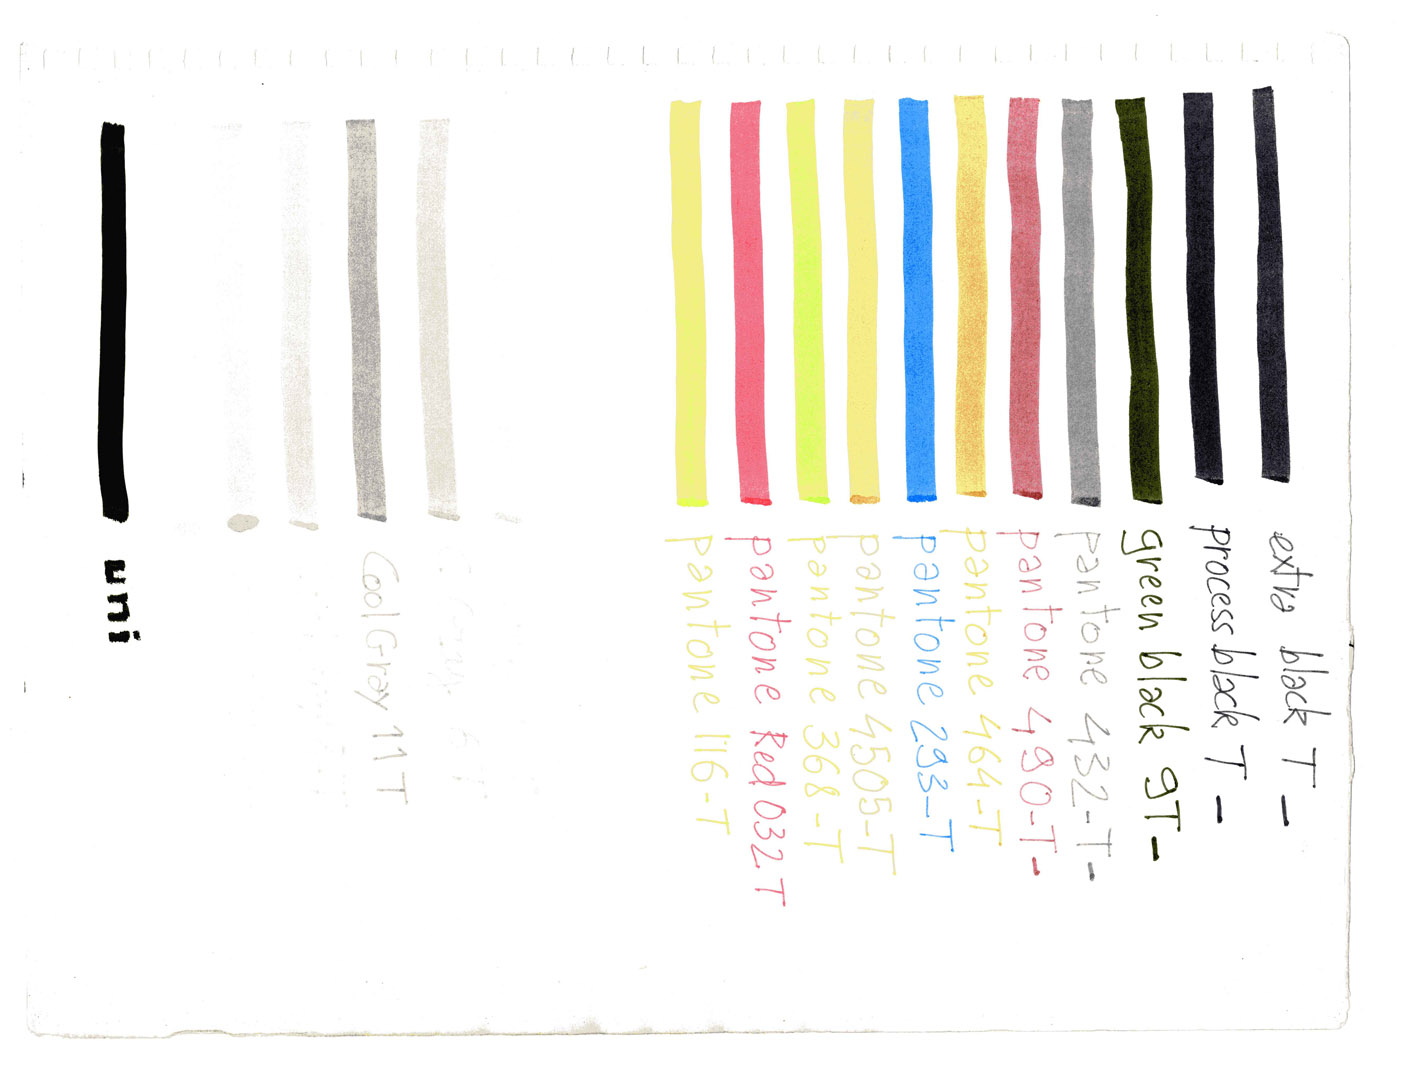 extra black T –
process black T –
green black 9T –
pantone 432-T-
pantone 490-T-
pantone 464-T
pantone 293-T
pantone 4505-T
pantone 368-T
pantone Red 032.T
pantone 116-T
Cool Gray 11T
uni